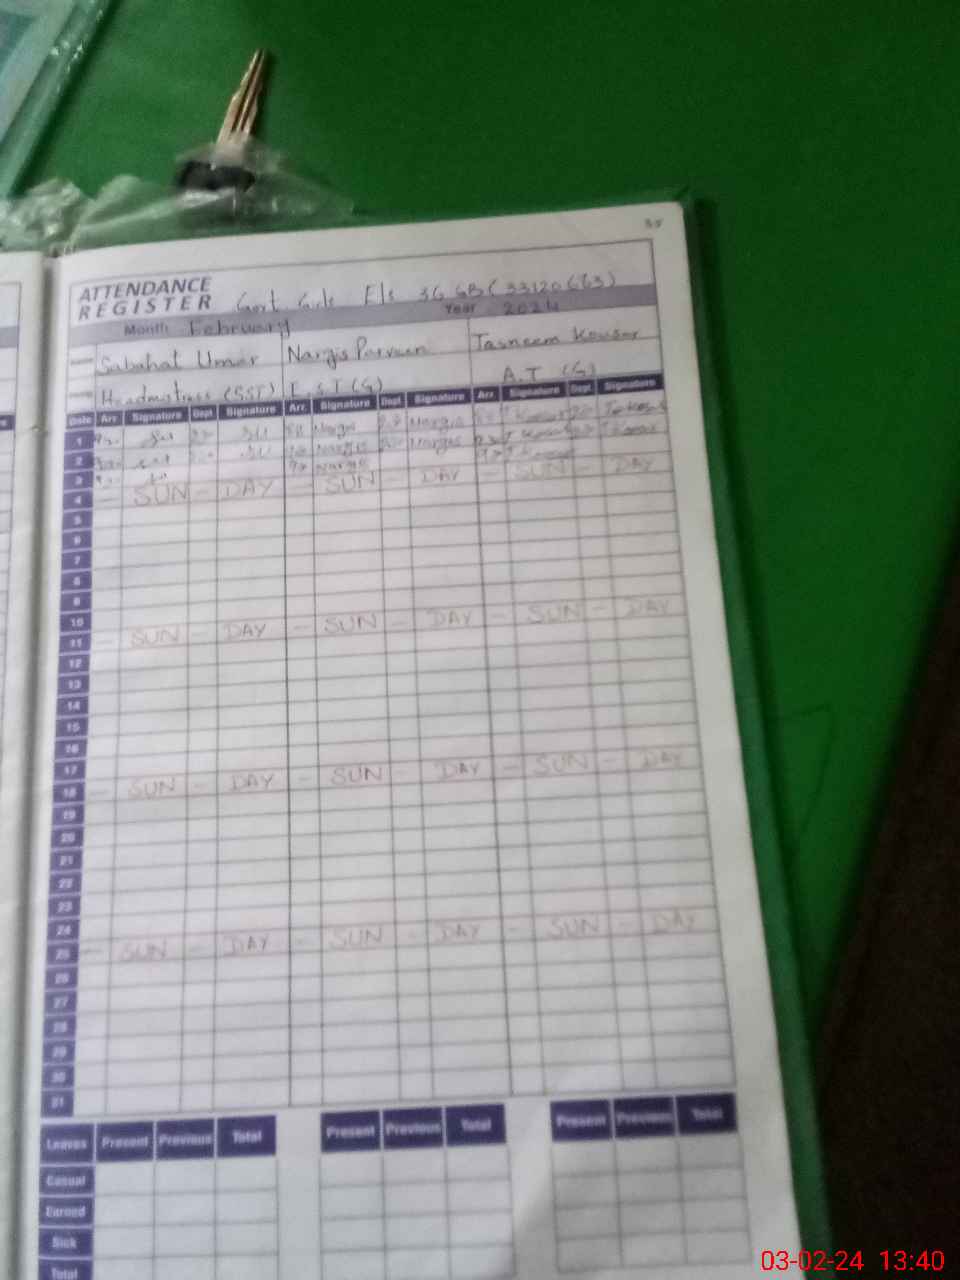 35
ATTENDANCE
REGISTER Govt Girls E/s 36 GB (33120663)
Month February Year 2024
Sabahat Umar Nargis Parveen Tasneem Kousar
Headmistress (SST) E.S.T (G) A.T (G)
Date Arr Signature Dept Signature Arr. Signature Dept Signature Arr. Signature Dept Signature
1 Nargis Nargis T Kousar
2 Nargis Nargis T Kousar
3 Nargis T Kousar
4 - SUN - DAY - SUN - DAY - SUN - DAY
5
6
7
8
9
10
11 - SUN - DAY - SUN - DAY - SUN - DAY
12
13
14
15
16
17
18 - SUN - DAY - SUN - DAY - SUN - DAY
19
20
21
22
23
24
25 - SUN - DAY - SUN - DAY - SUN - DAY
26
27
28
29
30
31
Leaves Present Previous Total Present Previous Total Present Previous Total
Casual
Earned
Sick
Total
03-02-24 13:40